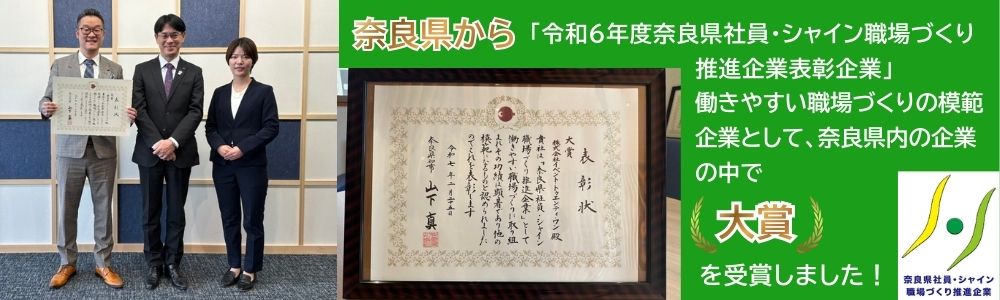 奈良県から「令和6年度奈良県社員・シャイン職場づくり
推進企業表彰企業」
働きやすい職場づくりの模範
企業として、奈良県内の企業
の中で
大賞
を受賞しました！
表彰状
大賞
株式会社イベント・トゥエンティ・ワン 殿
貴社は「奈良県社員・シャイン
職場づくり推進企業」として
働きやすい職場づくりに取り組
まれその功績は顕著であり他の
模範になるものと認められました
のでこれを表彰します
令和七年二月二十五日
奈良県知事 山下 真
奈良県社員・シャイン
職場づくり推進企業
表彰状